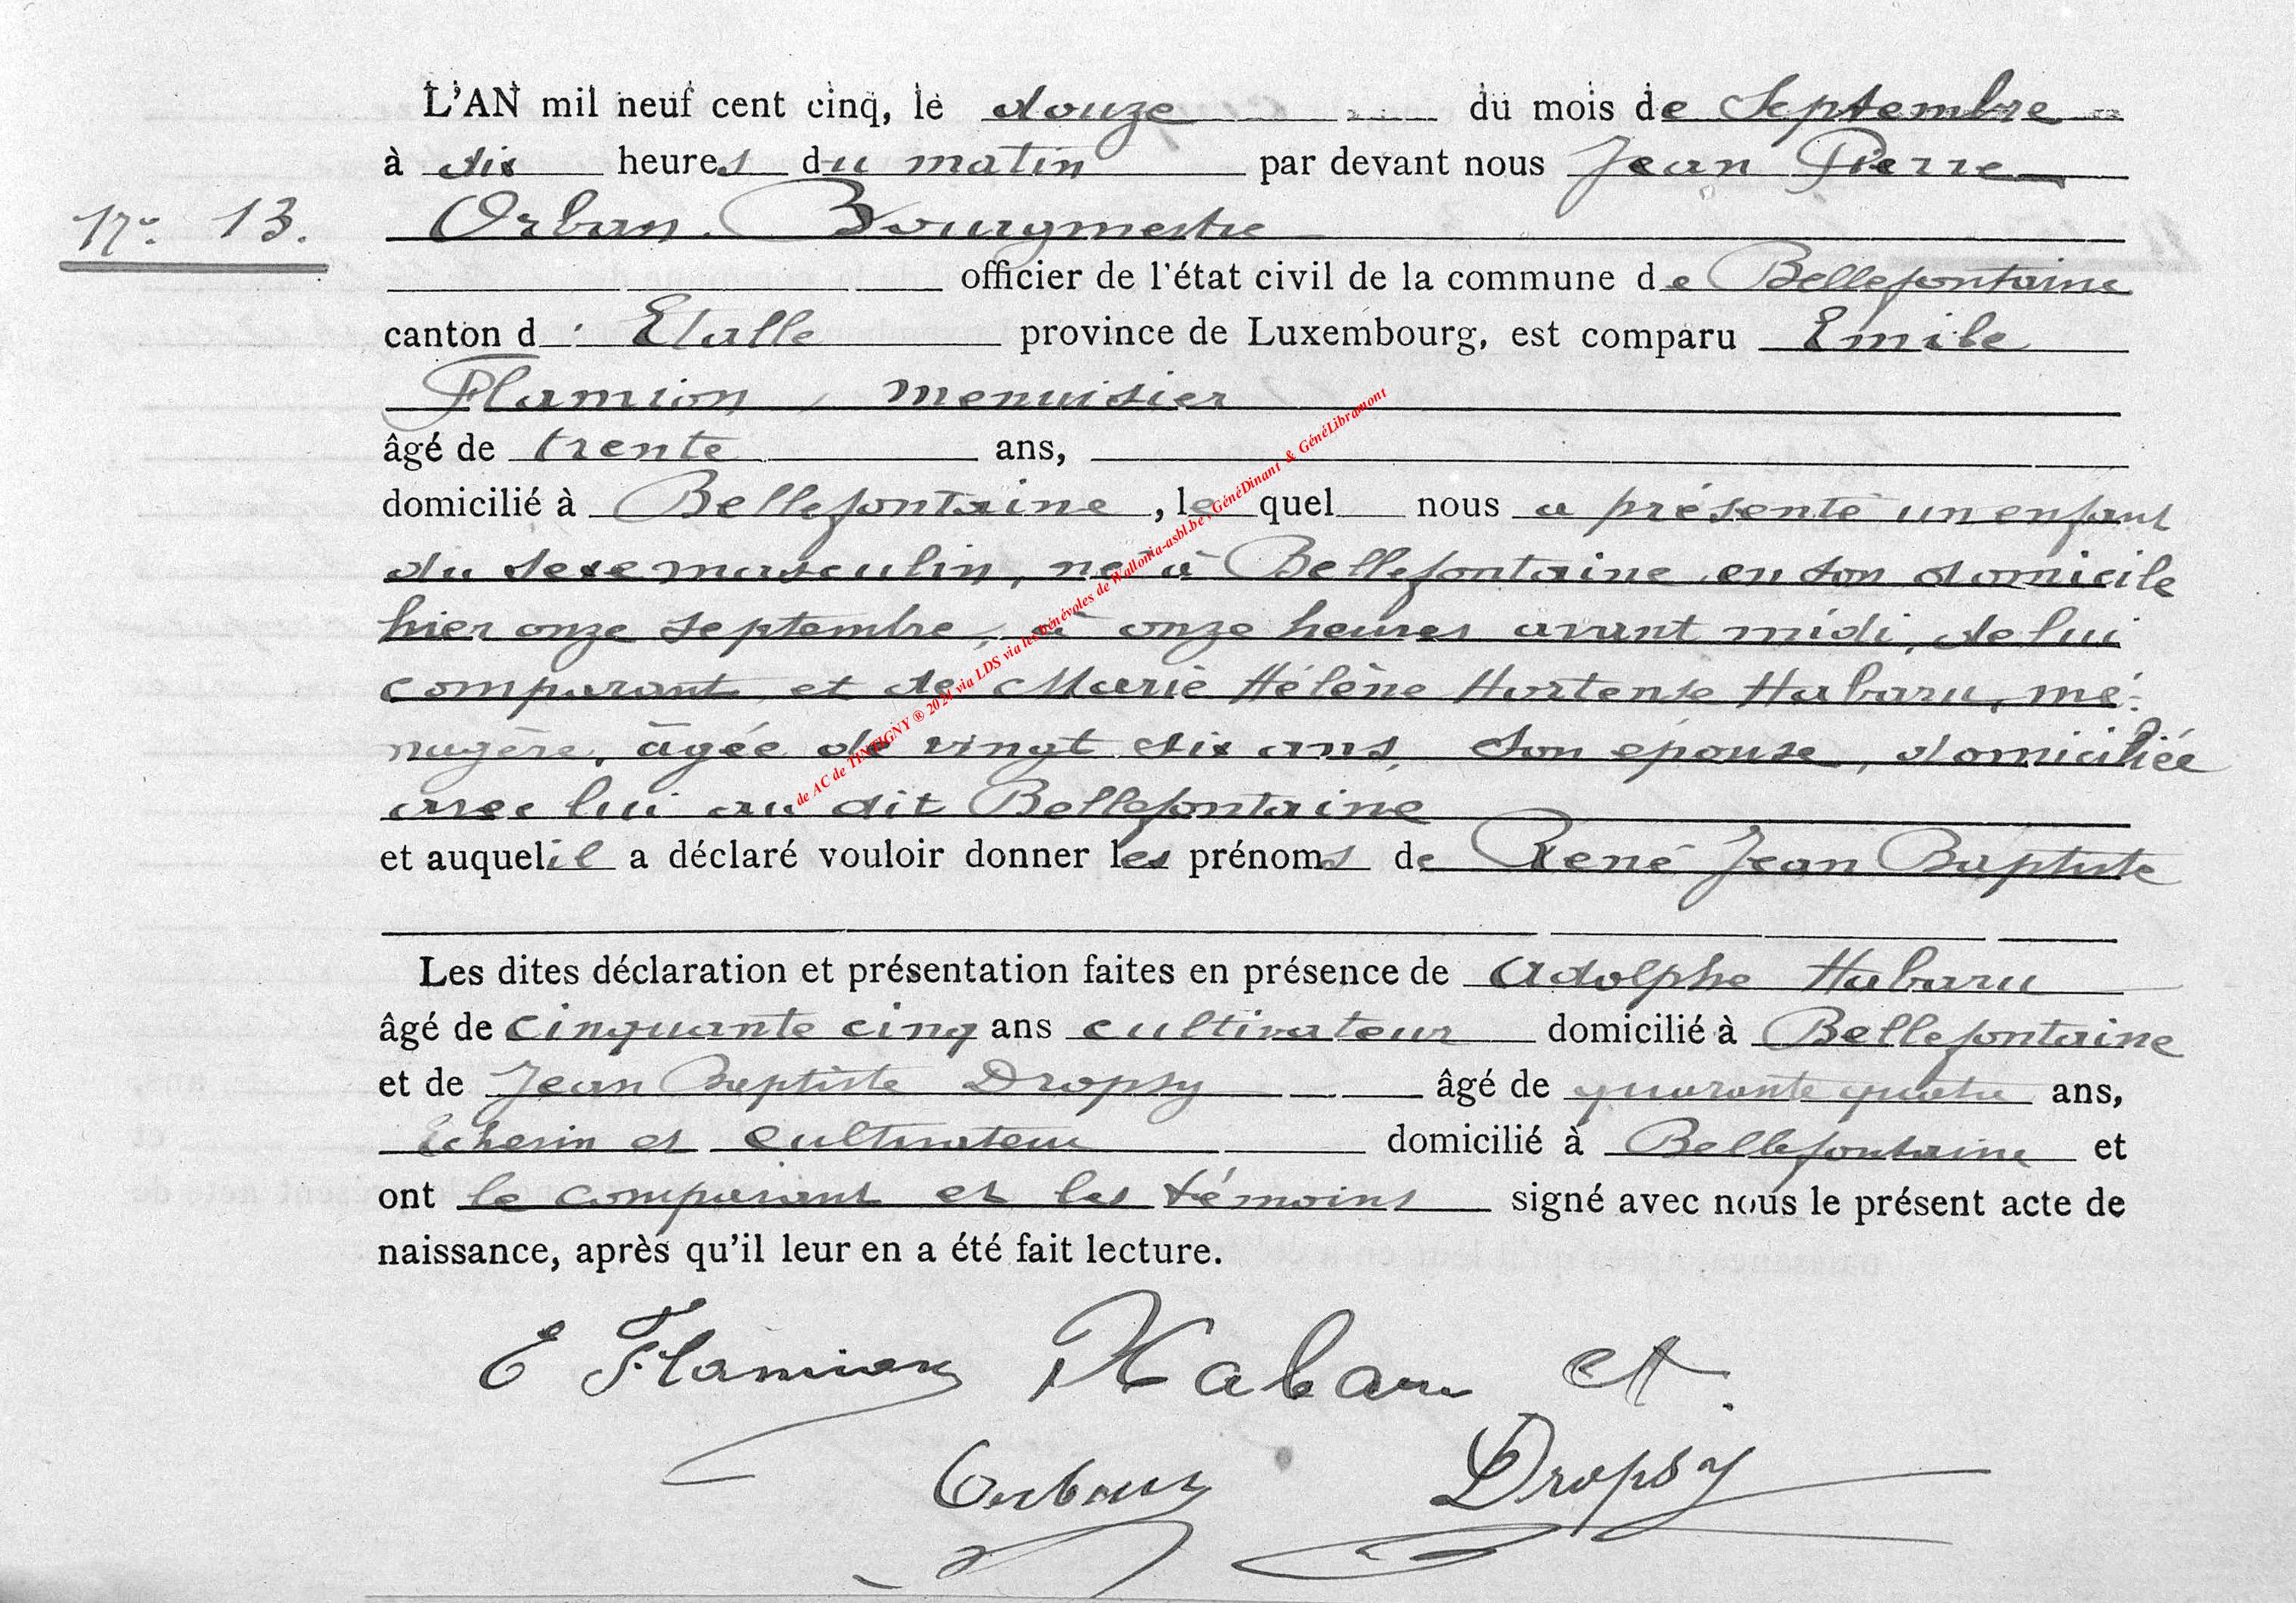 L'AN mil neuf cent cinq, le douze du mois de Septembre
à dix heures du matin par devant nous Jean Pierre
N° 13.
Orban. Bourgmestre
officier de l'état civil de la commune de Bellefontaine
canton d' Etalle province de Luxembourg, est comparu Emile
Flamion, menuisier
âgé de trente ans,
domicilié à Bellefontaine, le quel nous a présenté un enfant
du sexe masculin, né à Bellefontaine en son domicile
hier onze septembre, à onze heures avant midi, de lui
comparant et de Marie Hélène Hortense Habaru, mé-
nagère, âgée de vingt six ans, son épouse, domiciliée
avec lui au dit Bellefontaine
et auquel il a déclaré vouloir donner les prénoms de René Jean Baptiste
Les dites déclaration et présentation faites en présence de Adolphe Habaru
âgé de cinquante cinq ans cultivateur domicilié à Bellefontaine
et de Jean Baptiste Dropsy âgé de quarante quatre ans,
Echevin et cultivateur domicilié à Bellefontaine et
ont le comparant et les témoins signé avec nous le présent acte de
naissance, après qu'il leur en a été fait lecture.
E Flamion Habaru A
Orban Dropsy
de AC de TINTIGNY ® 2024 via LDS via les bénévoles de Wallonia-asbl.be, GénéDinant & GénéLibramont